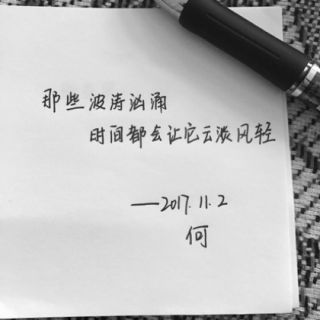 那些波涛汹涌
时间都会让它云淡风轻
—2017.11.2
何